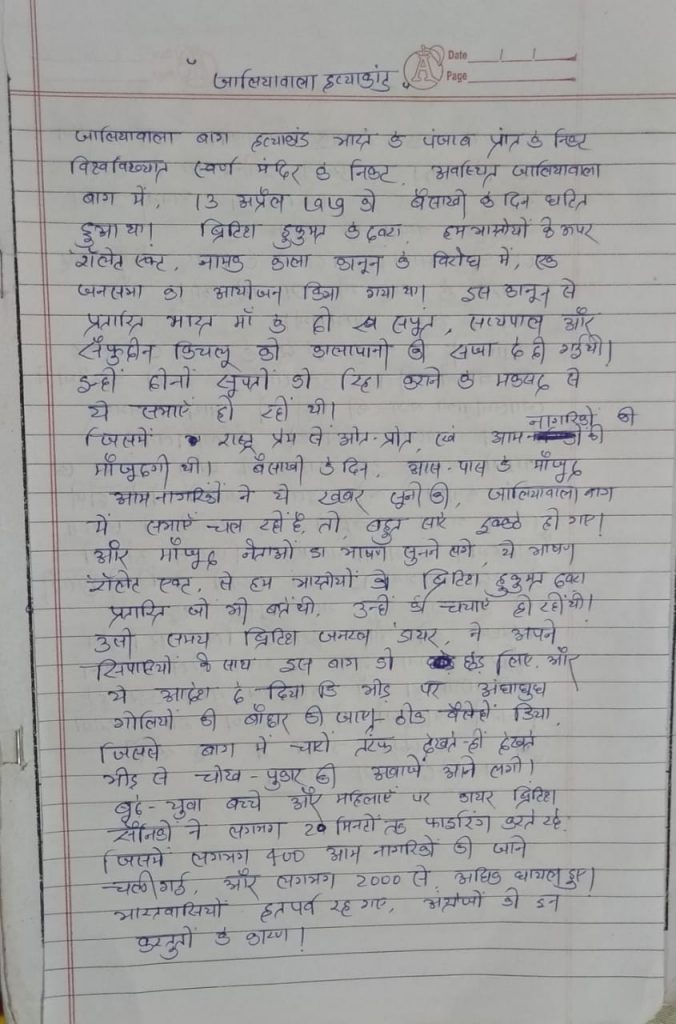 Date
Page
" जालियावाला हत्याकांड "
जालियावाला बाग हत्याकांड भारत के पंजाब प्रांत के निकट
विश्वविख्यात स्वर्ण मंदिर के निकट, अवस्थित जालियावाला
बाग में, 13 अप्रैल 1919 को बैसाखी के दिन घटित
हुआ था। ब्रिटिश हुकुमत के द्वारा, हम भारतीयों के ऊपर
रॉलेट एक्ट, नामक काला कानून के विरोध में, एक
जनसभा का आयोजन किया गया था। इस कानून से
प्रतारित भारत माँ के दो सपूत, सत्यपाल और
सैफुद्दीन किचलू को कालापानी की सजा दे दी गई थी।
इन्हीं दोनों सुपुत्रों को रिहा कराने के मकसद से
ये सभाएँ हो रहीं थी।
नागरिकों की
जिसमें राष्ट्र प्रेम से ओत-प्रोत, एवं आम की
मौजुदगी थी। बैसाखी के दिन, आस-पास के मौजुद
आमनागरिकों ने ये खबर सुनी की, जालियावाला बाग
में सभाएँ चल रहीं हैं, तो, बहुत सारे इकठ्ठे हो गए।
और मौजुद नेताओं का भाषण सुनने लगे, ये भाषण
रॉलेट एक्ट, से हम भारतीयों को ब्रिटिश हुकुमत द्वारा
जो भी बातें थी, उन्हीं की चर्चाएँ हो रहीं थी।
उसी समय ब्रिटिश जनरल डायर, ने अपने
सिपाहियों के साथ इस बाग को घेर लिए, और
ये आदेश दे दिया कि भीड़ पर अंधाधुध
गोलियों की बौछार की जाए- ठीक वैसेहीं किया,
जिससे बाग में चारों तरफ देखते हीं देखते
भीड़ से चीख-पुकार की आवाजें आने लगी।
बुढ़े-युवा बच्चे और महिलाएँ पर कायर ब्रिटिश
सैनिकों ने लगभग 20 मिनटों तक फाइरिंग करते रहे.
जिसमें लगभग 400 आम नागरिकों की जाने
चली गई, और लगभग 2000 से अधिक घायल हुए।
भारतवासियों हतपर्व रह गए, अंग्रेजों की इन
करतुतों के कारण!